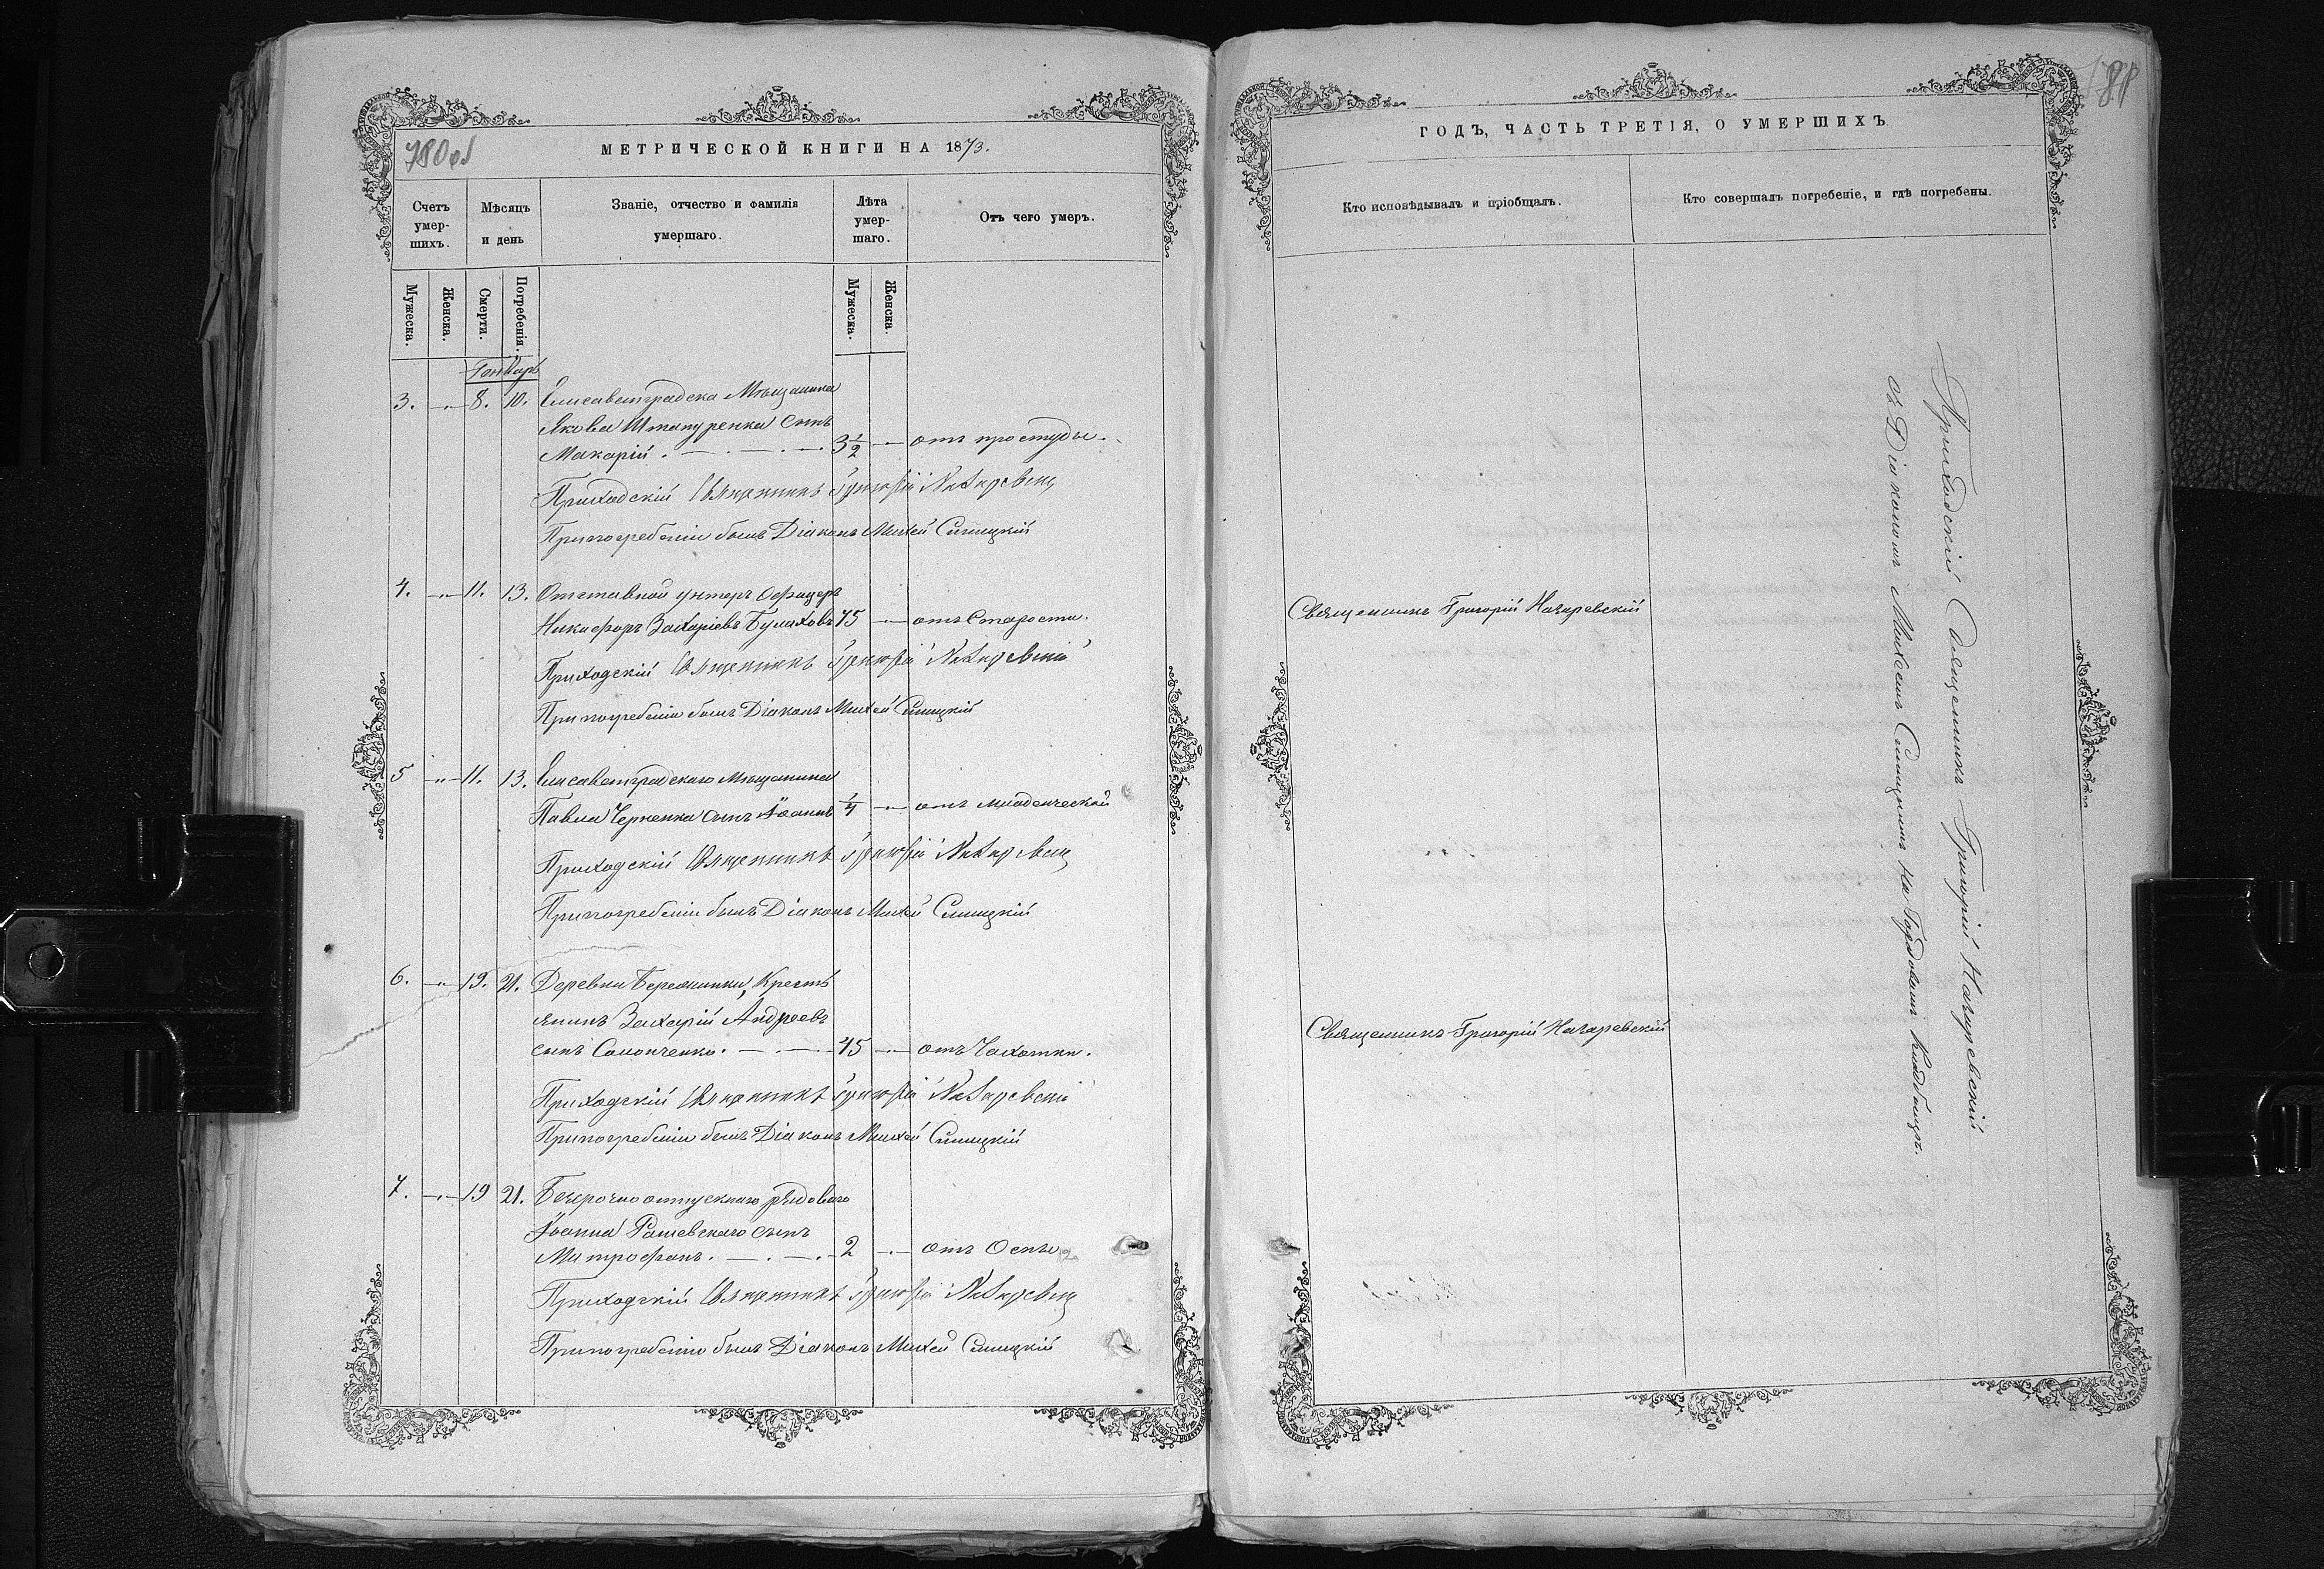 780 об
МЕТРИЧЕСКОЙ КНИГИ НА 1873.
Счетъ умер-шихъ.
Мѣсяцъ и день
Званіе, отчество и фамилія умершаго.
Лѣта умер-шаго.
Отъ чего умеръ.
Мужеска.
Женска.
Смерти.
Погребенія.
Мужеска.
Женска.
Генваръ
3. 8. 10. Елисаветградска Мѣщанина
Якова сынъ
Макарій. 3 1/2 отъ простуды.
Приходскій Священникъ Григорій Назаревскій
При погребеніи былъ Діаконъ Михей Синицкій
4. 11. 13. Отставной унтеръ офицеръ
Никифоръ Захаріевъ Булаховъ 75 отъ Старости.
Приходскій Священникъ Григорій Назаревскій
При погребеніи былъ Діаконъ Михей Синицкій
5 11. 13. Елисаветградскаго Мѣщанина
Павла Черненка сынъ Іоаннъ 1/4 отъ младенческой
Приходскій Священникъ Григорій Назаревскій
При погребеніи былъ Діаконъ Михей Синицкій
6. 19. 21. Деревни Бережинки, Кресть
янинъ Захарій Андреевъ
сынъ 45 отъ Чахотки.
Приходскій Священникъ Григорій Назаревскій
При погребеніи былъ Діаконъ Михей Синицкій
7. 19 21. Безсрочно отпускнаго рядоваго
Іоанна Рашевскаго сынъ
Митрофанъ. 2 отъ Оспы
Приходскій Священникъ Григорій Назаревскій
При погребеніи былъ Діаконъ Михей Синицкій
781
ГОДЪ, ЧАСТЬ ТРЕТІЯ, О УМЕРШИХЪ
Кто исповѣдывалъ и пріобщалъ.
Кто совершалъ погребеніе, и гдѣ погребены.
Священникъ Григорій Назаревскій
Священникъ Григорій Назаревскій
Приходскій Священникъ Григорій Назаревскій
съ Діакономъ Михеемъ Синицкимъ на Кладбищѣ.